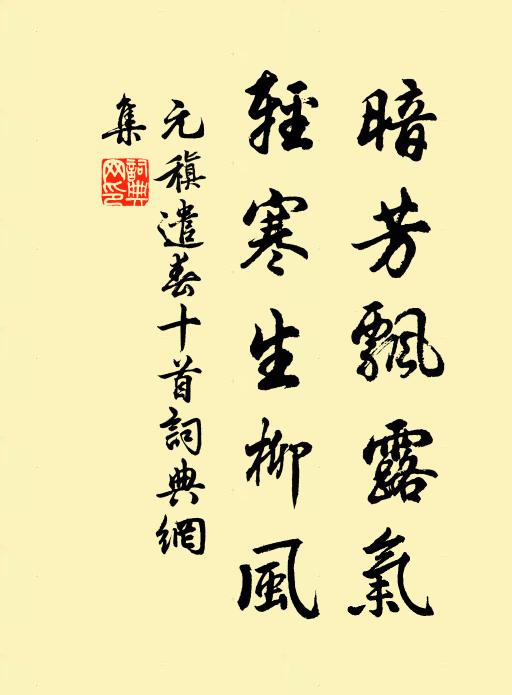 暗芳飄露氣
輕寒生柳風
元稹遣春十首詞典網
集
詞典網印